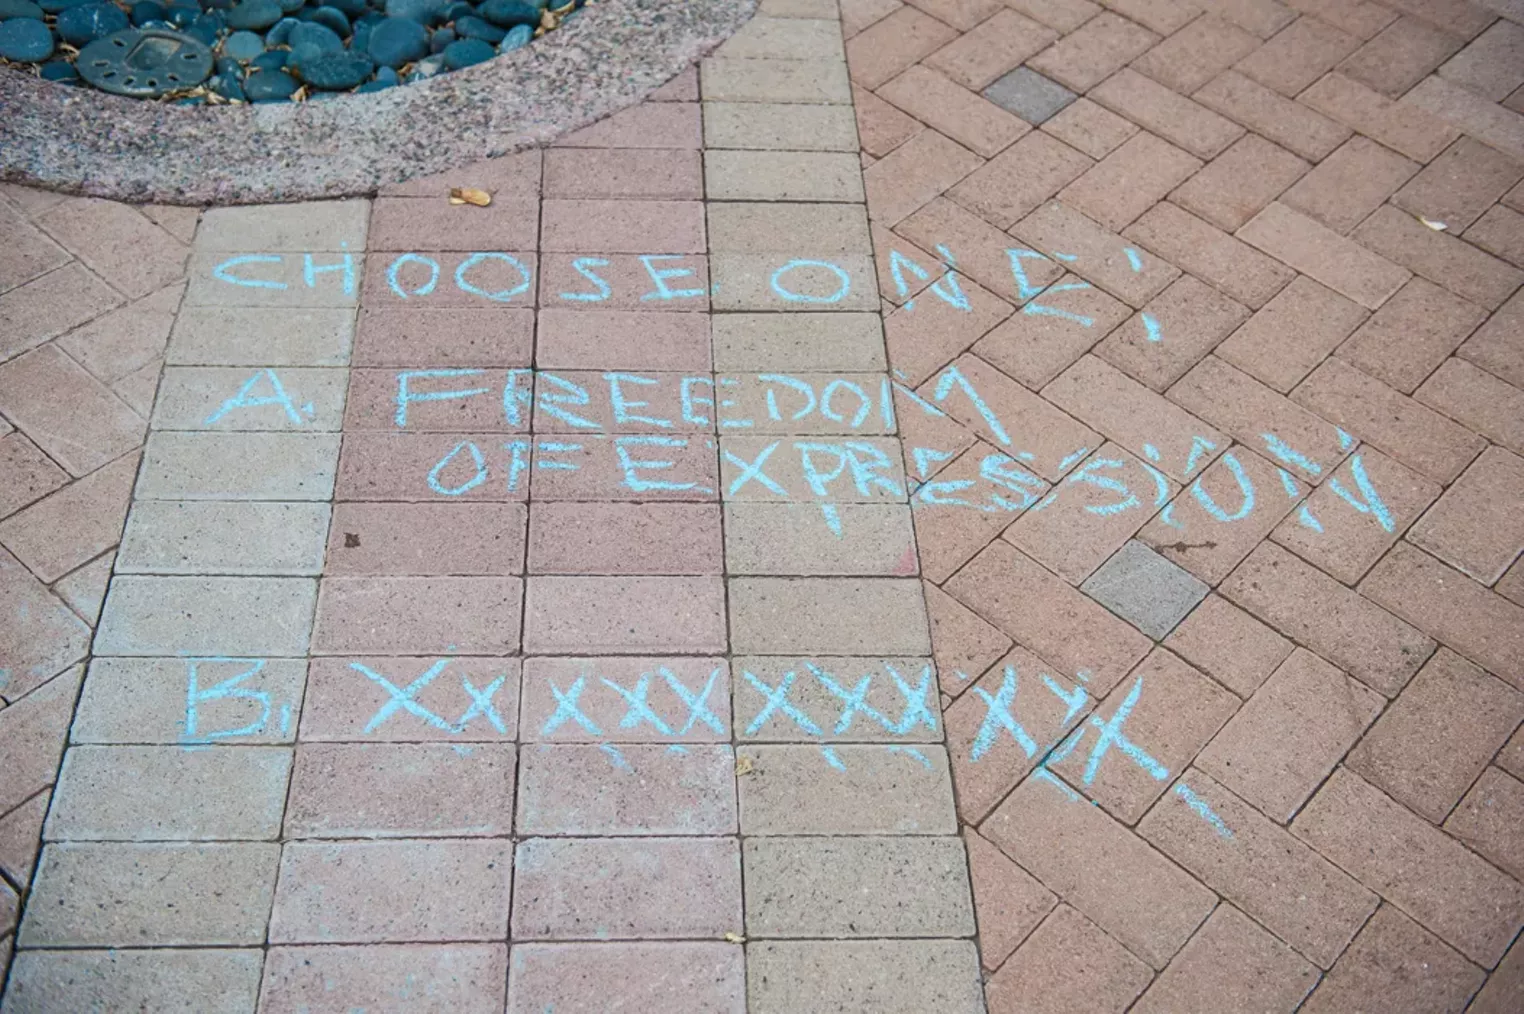 CHOOSE ONE:
A. FREEDOM
OF EXPRESSION
B. XXXXXXXXXXX